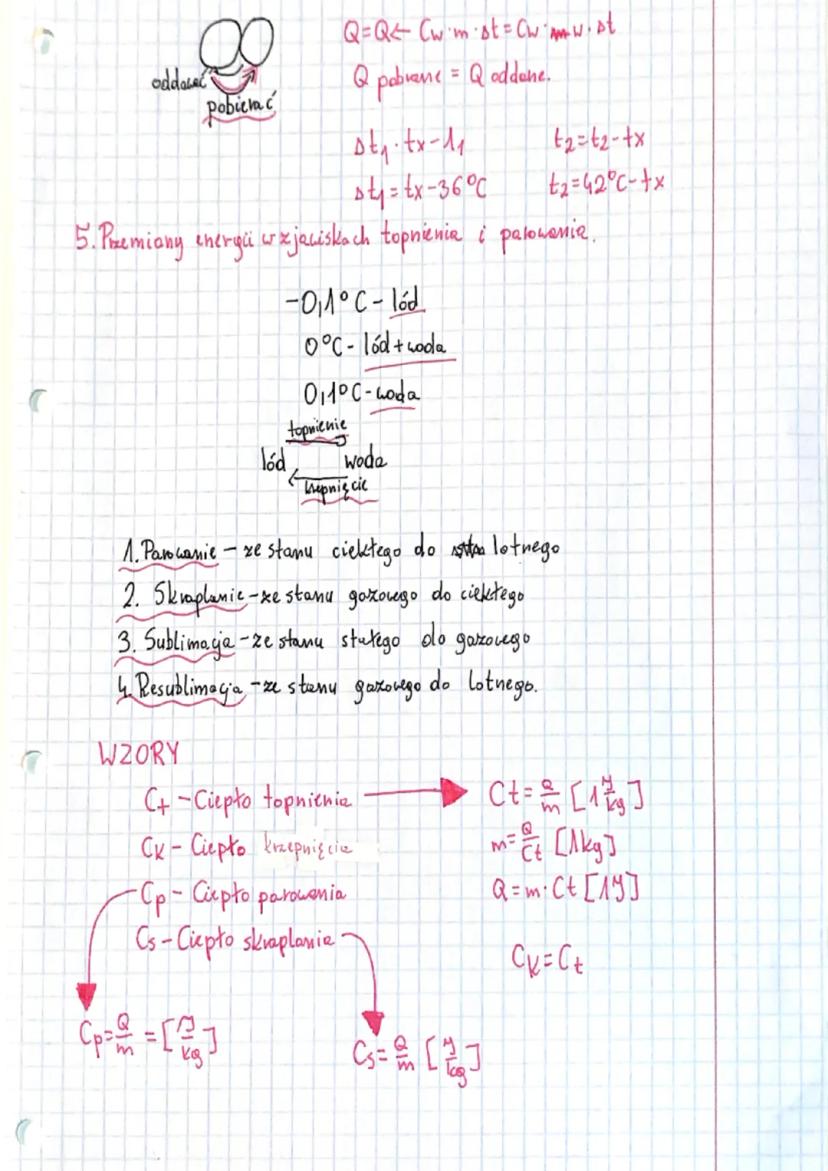 Q=Q← Cw·m·Δt=Cw·mw·Δt
oddawać
Q pobrane = Q oddane.
pobierać
Δt₁·tx-1₁ t₂=t₂-tx
Δt₁=tx-36°C t₂=42°C-tx
5. Przemiany energii w zjawiskach topnienia i parowania.
-0,1°C-lód
0°C-lód+woda
0,1°C-woda
topnienie
lód woda
krzepnięcie
1. Parowanie - ze stanu ciekłego do lotnego
2. Skraplanie - ze stanu gazowego do ciekłego
3. Sublimacja - ze stanu stałego do gazowego
4. Resublimacja - ze stanu gazowego do lotnego.
WZORY
Ct - Ciepło topnienia Ct=Q/m [1J/kg]
Ck - Ciepło krzepnięcia m=Q/Ct [1kg]
Cp - Ciepło parowania Q=m·Ct [1J]
Cs - Ciepło skraplania Ck=Ct
Cp=Q/m=[J/kg] Cs=Q/m [J/kg]